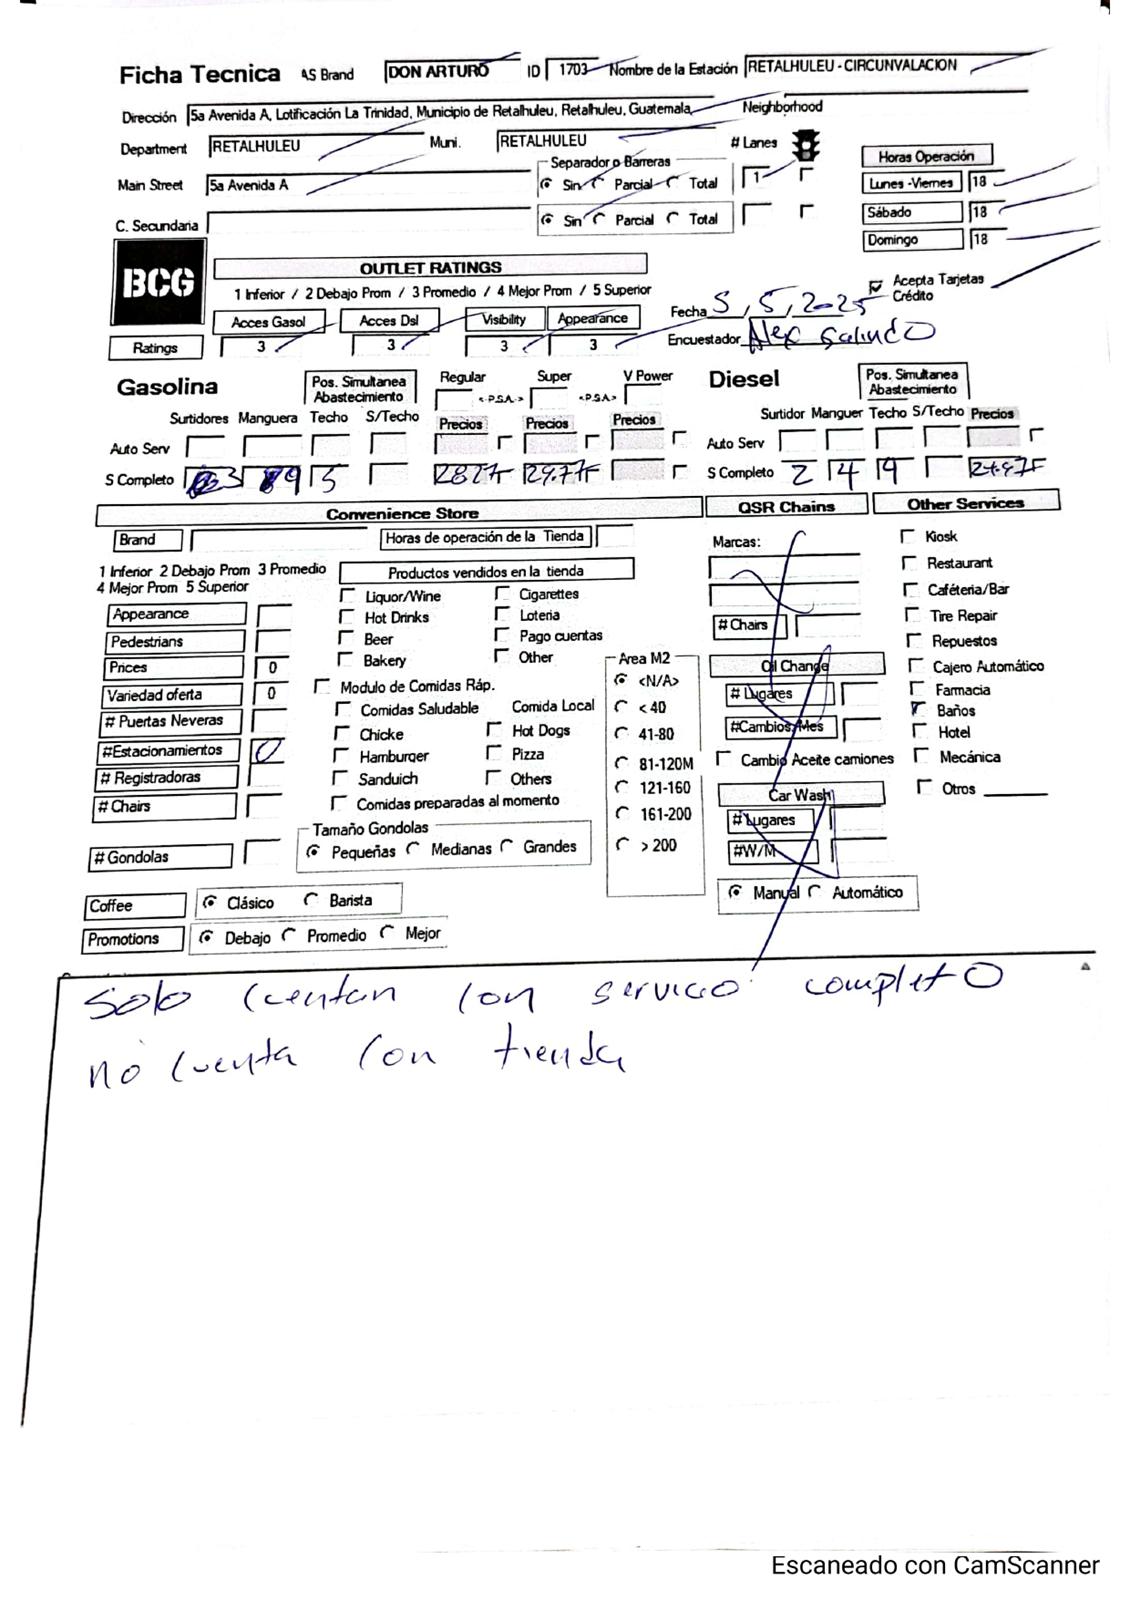 Ficha Tecnica AS Brand DON ARTURO ID 1703 Nombre de la Estación RETALHULEU - CIRCUNVALACION
Dirección 5a Avenida A, Lotificación La Trinidad, Municipio de Retalhuleu, Retalhuleu, Guatemala, Neighborhood
Department RETALHULEU Muni. RETALHULEU # Lanes
Horas Operación
Separador o Barreras
Main Street 5a Avenida A Sin Parcial Total 1 Lunes -Viernes 18
C. Secundaria Sin Parcial Total Sábado 18
Domingo 18
BCG
OUTLET RATINGS
1 Inferior / 2 Debajo Prom / 3 Promedio / 4 Mejor Prom / 5 Superior
Acepta Tarjetas
Crédito
Acces Gasol Acces Dsl Visibility Appearance Fecha 5, 5, 2025
Ratings 3 3 3 3 Encuestador Alex Galindo
Gasolina Pos. Simultanea Abastecimiento Regular Super V Power Diesel Pos. Simultanea Abastecimiento
<-P.S.A.-> <-P.S.A.->
Surtidores Manguera Techo S/Techo Precios Precios Precios Surtidor Manguer Techo S/Techo Precios
Auto Serv Auto Serv
S Completo 3 9 5 S Completo 2 4 9
Convenience Store QSR Chains Other Services
Brand Horas de operación de la Tienda Marcas: Kiosk
1 Inferior 2 Debajo Prom 3 Promedio Productos vendidos en la tienda Restaurant
4 Mejor Prom 5 Superior Liquor/Wine Cigarettes Caféteria/Bar
Appearance Hot Drinks Loteria # Chairs Tire Repair
Pedestrians Beer Pago cuentas Repuestos
Prices 0 Bakery Other Area M2 Oil Change Cajero Automático
Variedad oferta 0 Modulo de Comidas Ráp. <N/A> # Lugares Farmacia
# Puertas Neveras Comidas Saludable Comida Local < 40 #Cambios/Mes Baños
#Estacionamientos 0 Chicke Hot Dogs 41-80 Hotel
# Registradoras Hamburger Pizza 81-120M Cambio Aceite camiones Mecánica
# Chairs Sanduich Others 121-160 Car Wash Otros
Comidas preparadas al momento 161-200 # Lugares
# Gondolas Tamaño Gondolas > 200 #W/M
Pequeñas Medianas Grandes
Coffee Clásico Barista Manual Automático
Promotions Debajo Promedio Mejor
Solo Cuentan Con servicio completo
no Cuenta Con tienda
Escaneado con CamScanner